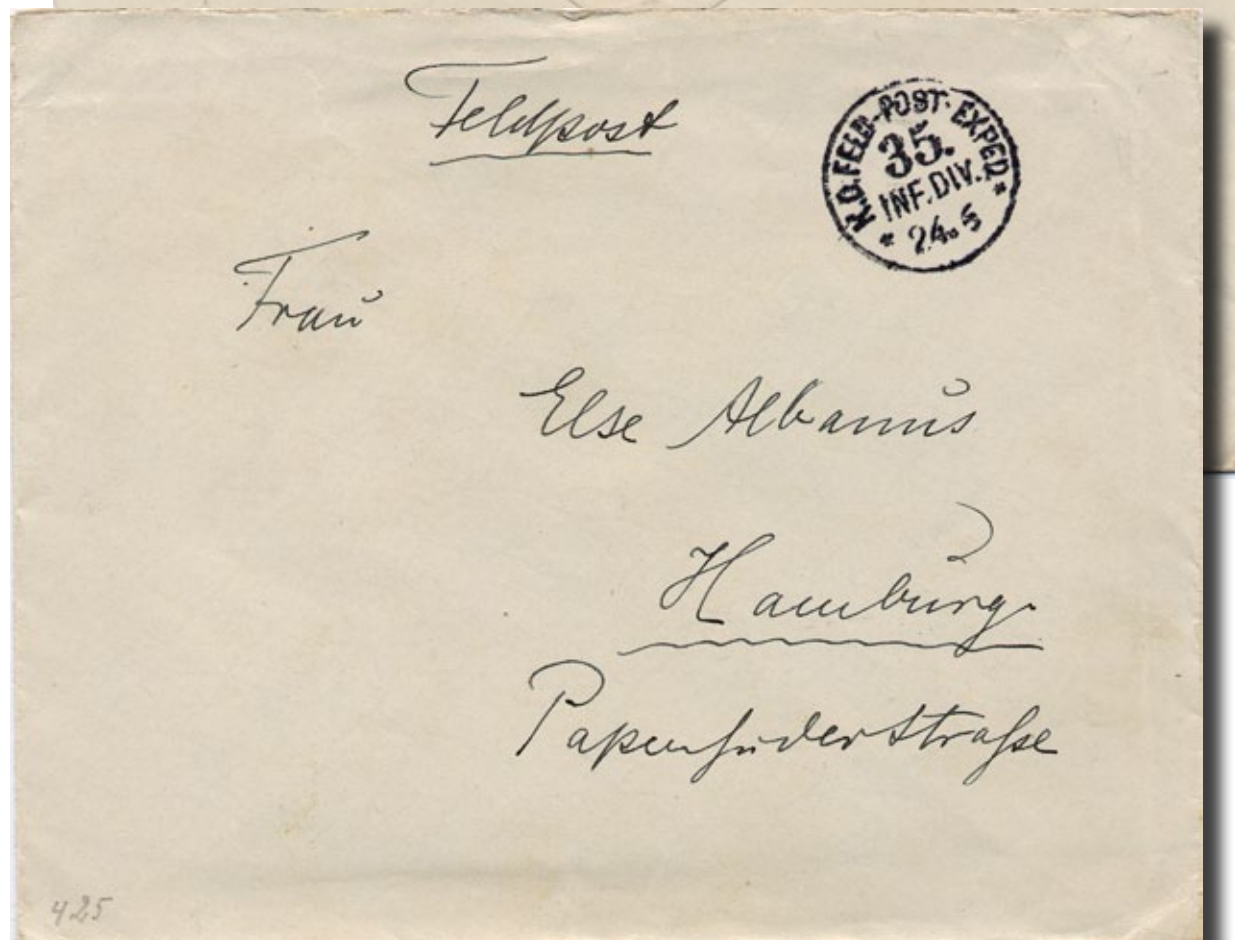 Feldpost
K.D.FELD-POST-EXPED
35.
INF.DIV.
* 24.5 *
Frau
Else Albanus
Hamburg.
Papenhuderstraße
425